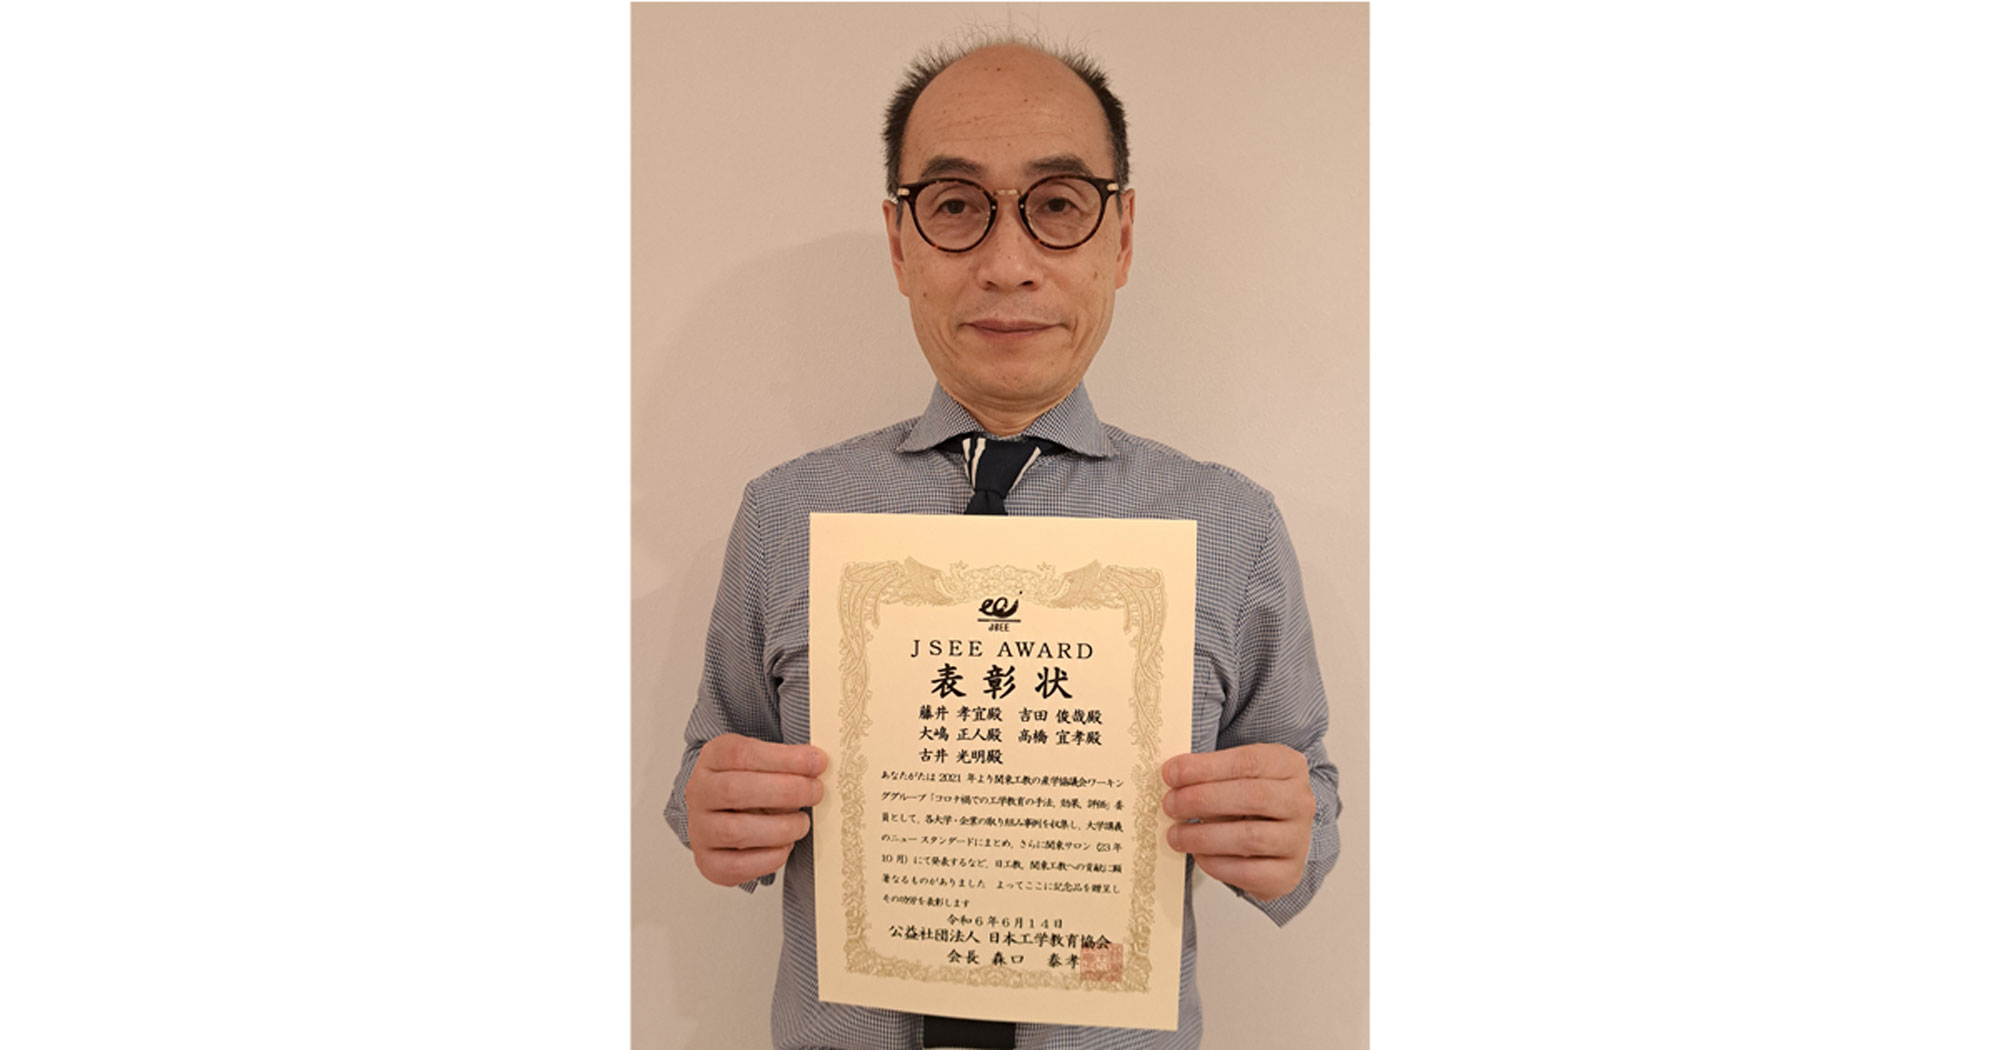 JSEE
JSEE AWARD
表彰状
藤井 孝宜殿 吉田 俊哉殿
大嶋 正人殿 高橋 宜孝殿
古井 光明殿
あなたがたは 2021 年より関東工教の産学協議会ワーキン
ググループ「コロナ禍での工学教育の手法、効果、評価」委
員として、各大学・企業の取り組み事例を収集し、大学講義
のニュースタンダードにまとめ、さらに関東サロン（23年
10月）にて発表するなど、日工教、関東工教への貢献に顕
著なるものがありました よってここに記念品を贈呈し
その功労を表彰します
令和6年6月14日
公益社団法人 日本工学教育協会
会長 森口 泰孝